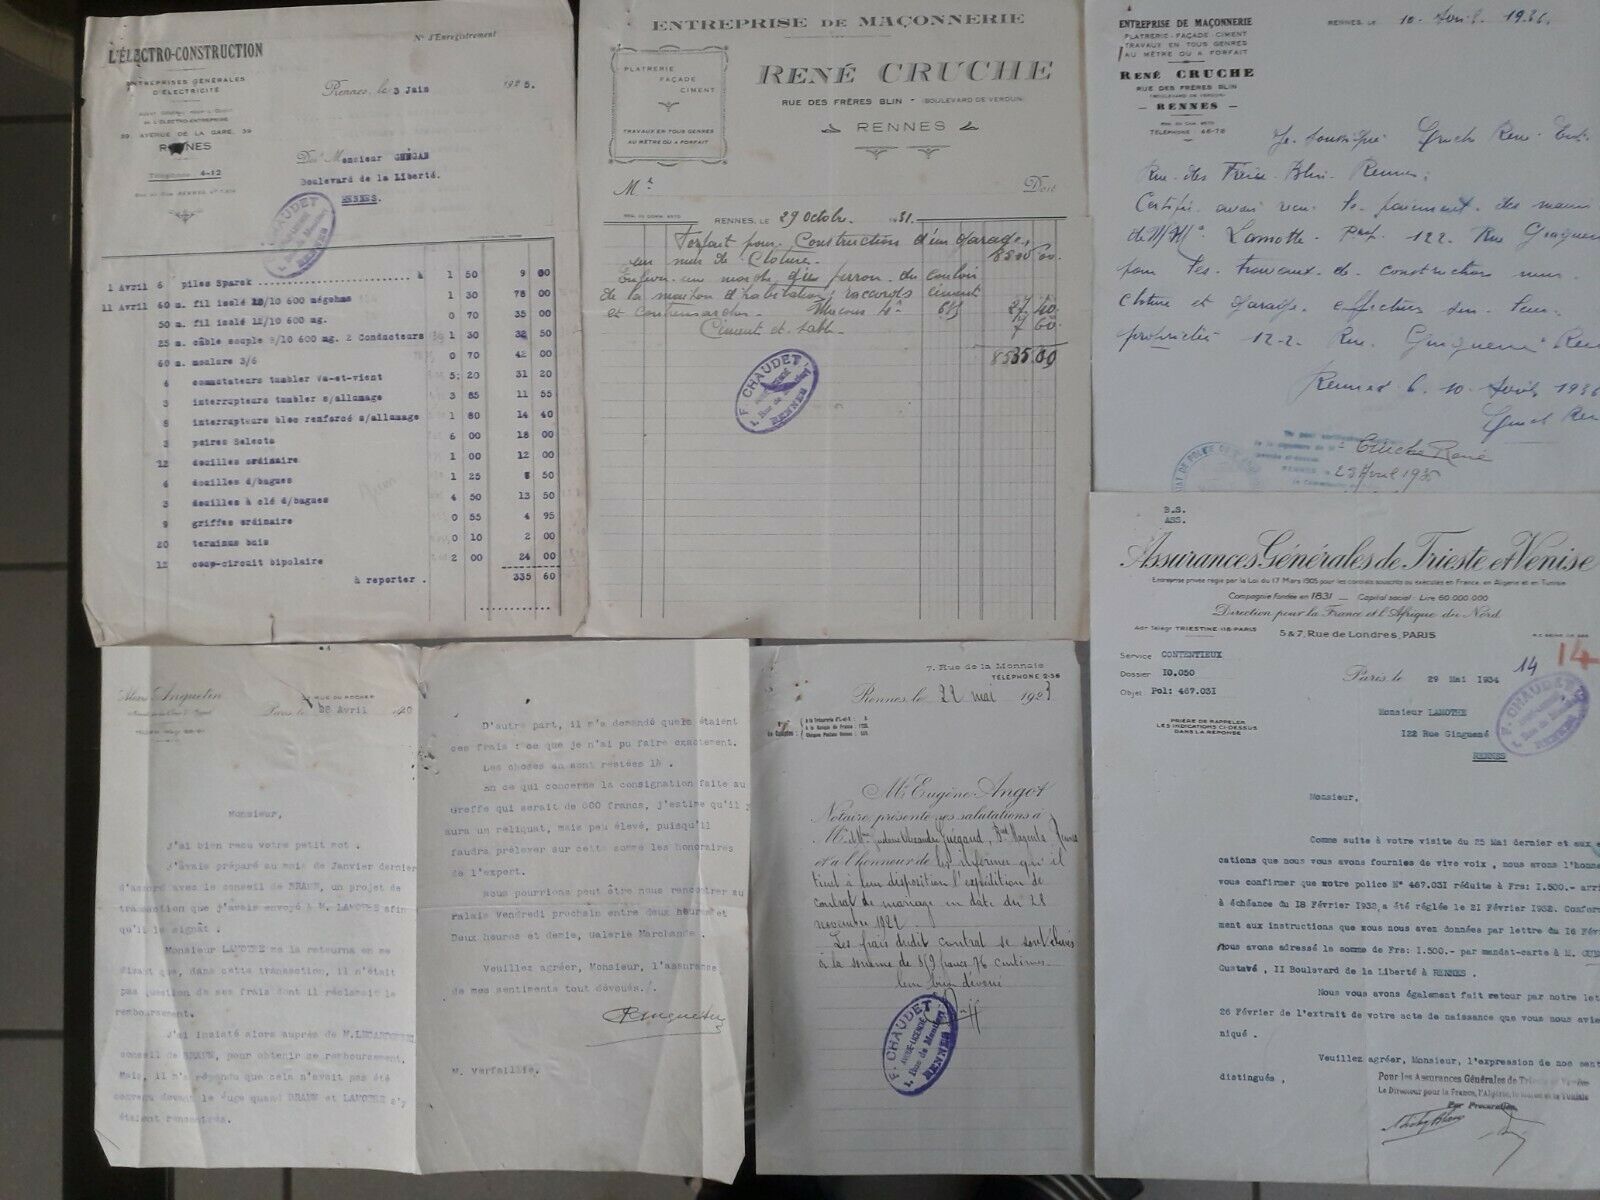 L'ÉLECTRO-CONSTRUCTION
N° d'Enregistrement
ENTREPRISES GÉNÉRALES
D'ÉLECTRICITÉ
Rennes, le 3 Juin 1925.
39, AVENUE DE LA GARE, 39
RENNES
Téléphone 4-12
Doit Monsieur GUÉGAN
Boulevard de la Liberté.
RENNES.
F. CHAUDET
RENNES
1 Avril 6 piles Sparck à 1 50 9 00
11 Avril 60 m. fil isolé 12/10 600 mégohms 1 30 78 00
50 m. fil isolé 12/10 600 mg. 0 70 35 00
25 m. câble souple 9/10 600 mg. 2 Conducteurs 1 30 32 50
60 m. moulure 3/6 0 70 42 00
6 commutateurs tumbler va-et-vient 5 20 31 20
3 interrupteurs tumbler s/allumage 3 85 11 55
8 interrupteurs bloc renforcé s/allumage 1 80 14 40
3 paires Selecta 6 00 18 00
12 douilles ordinaire 1 00 12 00
douilles d/bagues 1 25 50
3 douilles à clé d/bagues 4 50 13 50
9 griffes ordinaire 0 55 4 95
20 terminus buis 0 10 2 00
12 coup-circuit bipolaire 2 00 24 00
à reporter . 335 60
ENTREPRISE DE MAÇONNERIE
PLATRERIE
FAÇADE
CIMENT
TRAVAUX EN TOUS GENRES
AU MÈTRE OU A FORFAIT
RENÉ CRUCHE
RUE DES FRÈRES BLIN - (BOULEVARD DE VERDUN)
RENNES
Mr Doit
RENNES, LE 29 Octobre 1931
Forfait pour Construction d'un garage,
un mur de Cloture. 8500 00
Enlever un marche d'un perron du couloir
de la maison d'habitation, racords ciment
27 40
Ciment et sable 7 60
8535 00
F. CHAUDET
AVOUÉ-LICENCIÉ
1, Rue de Montfort
RENNES
ENTREPRISE DE MAÇONNERIE
PLATRERIE - FAÇADE - CIMENT
TRAVAUX EN TOUS GENRES
AU MÈTRE OU A FORFAIT
RENÉ CRUCHE
RUE DES FRÈRES BLIN
(BOULEVARD DE VERDUN)
- RENNES -
TÉLÉPHONE : 46-78
RENNES, LE 10 Avril 1936.
Je soussigné Cruche René Ent.
Rue des Frères Blin Rennes,
Certifie avoir reçu le paiement des mains
de Mr Lamotte Prop. 122 Rue Ginguené
pour les travaux de construction mur
Cloture et garage effectués sur leur
propriétés 122 Rue Ginguené
Rennes le 10 Avril 1936
Cruche René
23 Avril 1936
B.S.
ASS.
Assurances Générales de Trieste et Venise
Entreprise privée régie par la Loi du 17 Mars 1905 pour les contrats souscrits ou exécutés en France, en Algérie et en Tunisie
Compagnie fondée en 1831 — Capital social : Lire 60.000.000
Direction pour la France et l'Afrique du Nord
Adr Télégr TRIESTINE-118-PARIS
5 & 7, Rue de Londres, PARIS
Service CONTENTIEUX
Dossier 10.050
Objet Pol: 467.031
14 14
Paris le 29 Mai 1934
PRIÈRE DE RAPPELER
LES INDICATIONS CI-DESSUS
DANS LA RÉPONSE
Monsieur LAMOTHE
122 Rue Ginguené
RENNES
F. CHAUDET
1, Rue de Montfort
RENNES
Monsieur,
Comme suite à votre visite du 25 Mai dernier et aux
cations que nous vous avons fournies de vive voix , nous avons l'honne
vous confirmer que votre police N° 467.031 réduite à Frs: 1.500.- arri
à échéance du 18 Février 1932, a été réglée le 21 Février 1932. Conform
ment aux instructions que vous nous avez données par lettre du 16 Fév
nous avons adressé la somme de Frs: 1.500.- par mandat-carte à M.
Gustave, 11 Boulevard de la Liberté à RENNES .
Nous vous avons également fait retour par notre let
26 Février de l'extrait de votre acte de naissance que vous nous avie
niqué .
Veuillez agréer, Monsieur, l'expression de nos sent
distingués ,
Pour les Assurances Générales de Trieste et Venise
Le Directeur pour la France, l'Algérie, le Maroc et la Tunisie
Par Procuration,
Anquetin
RUE DU ROCHER
Paris le 28 Avril
Monsieur,
J'ai bien reçu votre petit mot .
J'avais préparé au mois de Janvier dernier
d'accord avec le conseil de BRAUN, un projet de
transaction que j'avais envoyé à M. LAMOTHE afin
qu'il le signât .
Monsieur LAMOTHE me le retourna en me
disant que, dans cette transaction, il n'était
pas question de ses frais dont il réclamait le
remboursement.
J'ai insisté alors auprès de M.
conseil de BRAUN, pour obtenir ce remboursement.
Mais, il m'a répondu que cela n'avait pas été
convenu devant le Juge quand BRAUN et LAMOTHE s'y
étaient rencontrés.
D'autre part, il m'a demandé quels étaient
ces frais : ce que je n'ai pu faire exactement.
Les choses en sont restées là .
En ce qui concerne la consignation faite au
Greffe qui serait de 600 francs, j'estime qu'il y
aura un reliquat, mais peu élevé, puisqu'il
faudra prélever sur cette somme les honoraires
de l'expert.
Nous pourrions peut être nous rencontrer au
Palais Vendredi prochain entre deux heures et
Deux heures et demie, Galerie Marchande .
Veuillez agréer, Monsieur, l'assurance
de mes sentiments tout dévoués.
M. Verfaillie.
7, Rue de la Monnaie
TÉLÉPHONE 2-36
Rennes, le 22 mai 1923
Me Eugène Angot
Notaire présente ses salutations à
et a l'honneur de les informer qu'il
tient à leur disposition l'expédition de
contrat de mariage en date du 28
novembre
Les frais dudit contrat se sont élevés
à la somme de 519 francs 76 centimes
leur bien dévoué
F. CHAUDET
AVOUÉ-LICENCIÉ
1, Rue de Montfort
RENNES